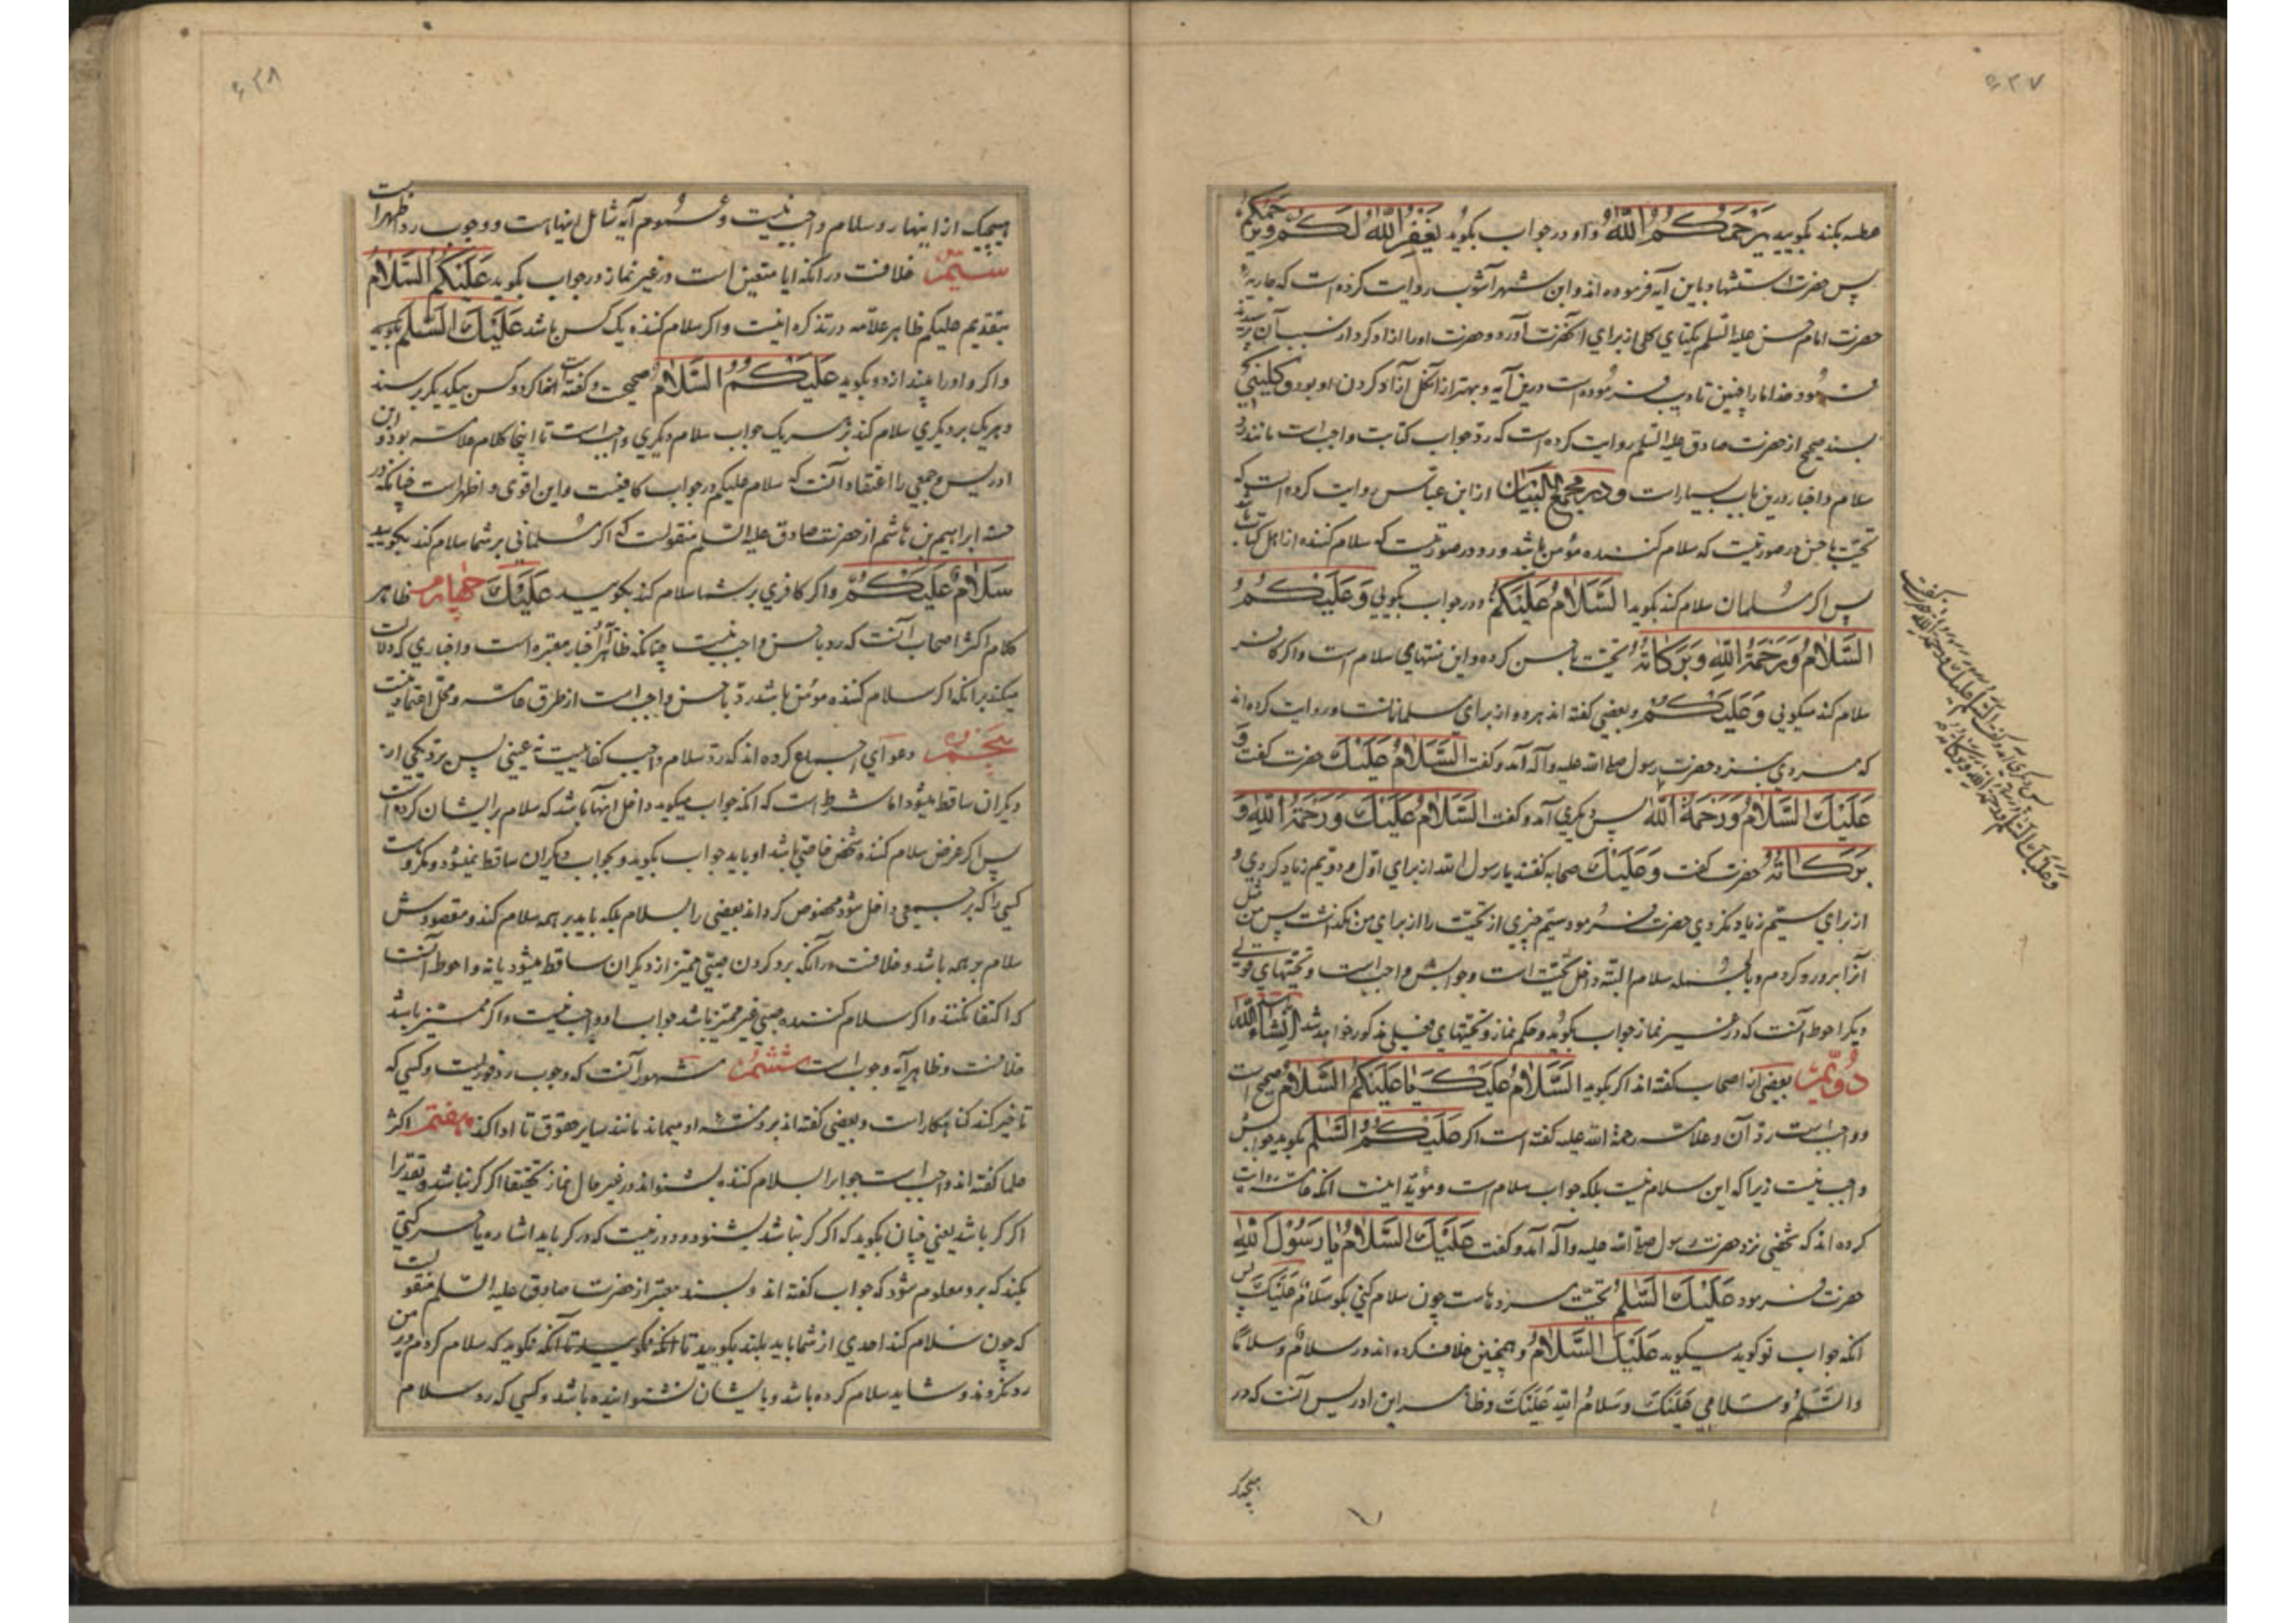 ۶۲۷
عطسه بکند بگویید یَرْحَمُکُمُ اللّٰهُ و او در جواب بگوید یَغْفِرُ اللّٰهُ لَکُمْ وَیَرْحَمُکُمْ
پس حضرت استشهاد باین آیه فرموده اند و ابن شهر آشوب روایت کرده است که جاریهٔ
حضرت امام حسن علیه السّلم یکتای کلی از برای آنحضرت آورد و حضرت او را ازاد کرد از سبب آن پرسیدند
فرمود خدا ما را چنین تادیب فرموده است درین آیه و بهتر از آن کل آزاد کردن او بود و کلینی
بسند صحیح از حضرت صادق علیه السّلم روایت کرده است که ردّ جواب کتابت واجب است مانند ردّ
سلام و اخبار درین باب بسیار است و در مجمع البیان از ابن عباس روایت کرده است که
تحیّت باحسن در صورتیست که سلام کننده مؤمن باشد و رد در صورتیست که سلام کننده از اهل کتاب باشد
پس اگر مسلمان سلام کند بگوید السَّلَامُ عَلَیْکُمْ و در جواب بگویی وَعَلَیْکُمُ
السَّلَامُ وَرَحْمَةُ اللّٰهِ وَبَرَکَاتُهُ تحیّت باحسن کرده و این منتهای سلام است و اگر کافر
سلام کند میگویی وَعَلَیْکُمْ و بعضی گفته اند هر دو از برای مسلمانانست و روایت کرده اند
که مردی بنزد حضرت رسول صلی الله علیه و آله آمد و گفت السَّلَامُ عَلَیْكَ حضرت گفت وَ
عَلَیْكَ السَّلَامُ وَرَحْمَةُ اللّٰهِ پس دیگری آمد و گفت السَّلَامُ عَلَیْكَ وَرَحْمَةُ اللّٰهِ وَ
بَرَکَاتُهُ حضرت گفت وَعَلَیْكَ صحابه گفتند یا رسول الله از برای اوّل و دویّم زیاد کردی و
از برای سیّم زیاد نکردی حضرت فرمود سیّم چیزی از تحیّت را از برای من نگذاشت پس من مثل
آنرا برو رد کردم و بالجمله سلام البتّه داخل تحیّت است و جوابش واجب است و تحیّتهای قولی
دیگر احوط آنست که در غیر نماز جواب بگوید و حکم نماز و تحیّتهای فعلی مذکور خواهد شد انشاء الله
دویّم بعضی از اصحاب گفته اند اگر بگوید السَّلَامُ عَلَیْكَ یا عَلَیْکُمُ السَّلَامُ صحیح است
و واجب است ردّ آن و علامه رحمة الله علیه گفته است اگر عَلَیْکُمُ السَّلٰمُ بگوید جوابش
واجب نیست زیرا که این سلام نیست بلکه جواب سلام است و مؤیّد اینست آنکه عامّه روایت
کرده اند که شخصی نزد حضرت رسول صلی الله علیه و آله آمد و گفت عَلَیْكَ السَّلَامُ یَا رَسُولَ اللّٰهِ
حضرت فرمود عَلَیْكَ السَّلٰمُ تحیّت مردهاست چون سلام کنی بگو سَلَامٌ عَلَیْكَ پس
آنکه جواب تو گوید میگوید عَلَیْكَ السَّلَامُ و همچنین خلاف کرده اند در سلامٌ و سلامًا
و السَّلٰمُ و سَلَامِی عَلَیْكَ و سَلَامُ اللّٰهِ عَلَیْكَ و ظاهر ابن ادریس آنست که در
هیچیک
پس دیگری آمد و گفت السّلام علیک و رحمة الله حضرت گفت
وَعَلَیْكَ السَّلَامُ وَرَحْمَةُ اللّٰهِ وَبَرَکَاتُهُ
۶۲۸
هیچیک از اینها رد سلام واجب نیست و عموم آیه شامل اینها هست و وجوب رد اظهر است
سیّم خلافست در آنکه آیا متعین است در غیر نماز در جواب بگوید عَلَیْکُمُ السَّلَامُ
بتقدیم علیکم ظاهر علامه در تذکره اینست و اگر سلام کننده یک کس باشد عَلَیْكَ السَّلٰمُ بگوید
و اگر واو را بیندازد و بگوید عَلَیْکُمُ السَّلَامُ صحیح است و گفته است اگر دو کس بیکدیگر برسند
و هر یک بر دیگری سلام کند بر هر یک جواب سلام دیگری واجب است تا اینجا کلام علامه بود و ابن
ادریس و جمعی را اعتقاد آنست که سلام علیکم در جواب کافیست و این اقوی و اظهر است چنانکه در
حسنه ابراهیم بن هاشم از حضرت صادق علیه السّلم منقولست که اگر مسلمانی بر شما سلام کند بگویید
سَلَامٌ عَلَیْکُمْ و اگر کافری بر شما سلام کند بگویید عَلَیْكَ چهارم ظاهر
کلام اکثر اصحاب آنست که رد باحسن واجب نیست چنانکه ظاهر اخبار معتبره است و اخباری که دلالت
میکند بر آنکه اگر سلام کننده مؤمن باشد ردّ باحسن واجب است از طرق عامّه و محلّ اعتماد نیست
پنجم دعوای اجماع کرده اند که ردّ سلام واجب کفاییست نه عینی پس برد یکی از
دیگران ساقط میشود اما شرط است که آنکه جواب میگوید داخل آنها باشد که سلام بر ایشان کرده است
پس اگر غرض سلام کننده شخص خاصّی باشد او باید جواب بگوید و بجواب دیگران ساقط نمیشود و مکروهست
کسی را که بر جمعی داخل شود مخصوص گرداند بعضی را بسلام بلکه باید بر همه سلام کند و مقصودش
سلام بر همه باشد و خلافست در آنکه برد کردن صبیّ ممیّز از دیگران ساقط میشود یا نه و احوط آنست
که اکتفا نکنند و اگر سلام کننده صبیّ غیر ممیّز باشد جواب او واجب نیست و اگر ممیّز باشد
خلافست و ظاهر آیه وجوب است ششم مشهور آنست که وجوب رد فوریست و کسی که
تاخیر کند گناهکار است و بعضی گفته اند بر ذمّهٔ او میماند مانند سایر حقوق تا ادا کند هفتم اکثر
علما گفته اند واجب است جواب را بسلام کننده بشنواند در غیر حال نماز تحقیقا اگر کر نباشد و تقدیرا
اگر کر باشد یعنی چنان بگوید که اگر کر نباشد بشنود و دور نیست که در کر باید اشاره یا حرکتی
بکند که برو معلوم شود که جواب گفته اند و بسند معتبر از حضرت صادق علیه السّلم منقولست
که چون سلام کند احدی از شما باید بلند بگویید تا آنکه نگوید که سلام کردم و بر من
رد نکردند و شاید سلام کرده باشد و بایشان نشنوانیده باشد و کسی که رد سلام